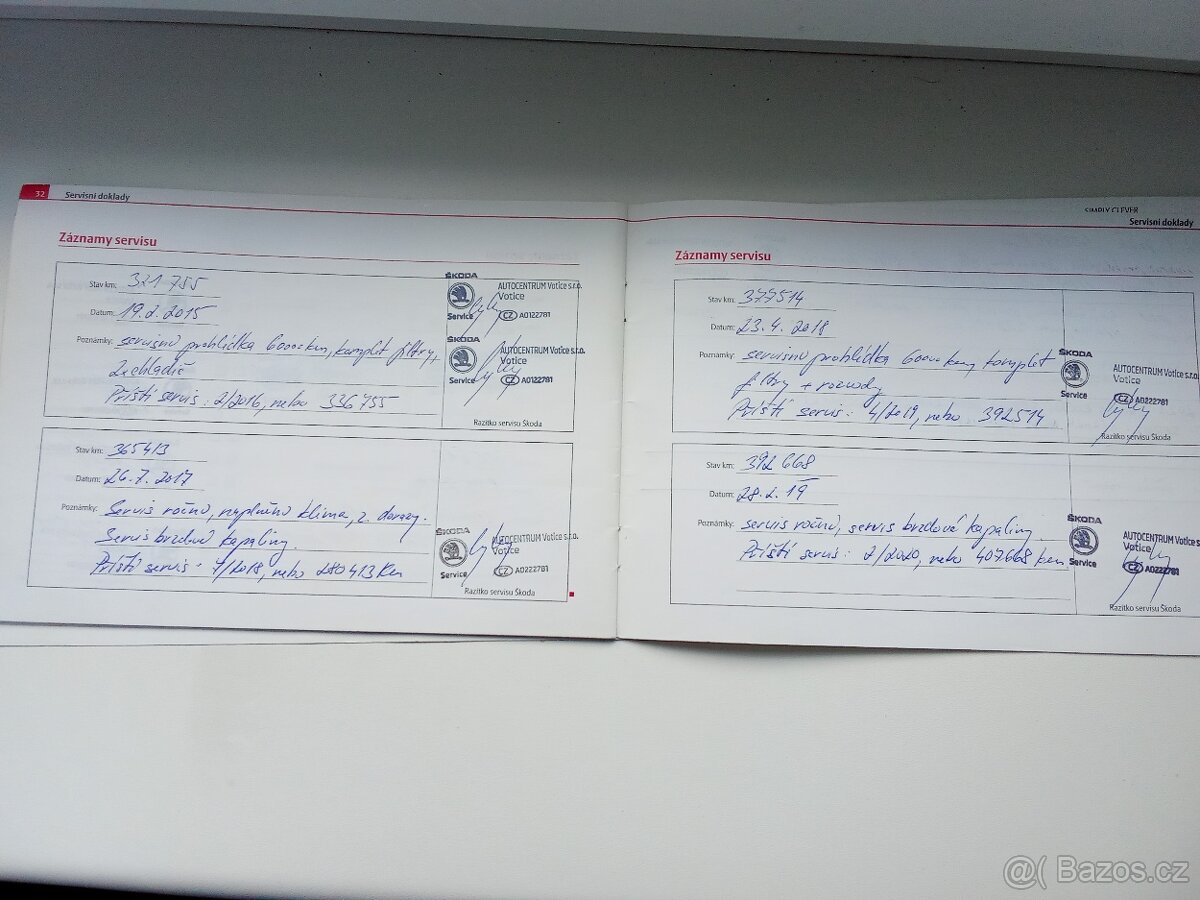 32 Servisní doklady
Záznamy servisu
Stav km: 321 755
Datum: 19.2.2015
Poznámky: servisní prohlídka 60000km, komplet filtry,
Příští servis: 2/2016, nebo 336 755
ŠKODA
Service
AUTOCENTRUM Votice s.r.o.
Votice
CZ A0122781
ŠKODA
Service
AUTOCENTRUM Votice s.r.o.
Votice
CZ A0122781
Razítko servisu Škoda
Stav km: 365413
Datum: 26.7.2017
Poznámky: Servis roční, naplněno klima, z. dorazy.
Servis brzdové kapaliny.
Příští servis: 7/2018, nebo 280413 km
ŠKODA
Service
AUTOCENTRUM Votice s.r.o.
Votice
CZ A0222781
Razítko servisu Škoda
SIMPLY CLEVER
Servisní doklady
Záznamy servisu
Stav km: 377514
Datum: 23.4.2018
Poznámky: servisní prohlídka 60000km komplet
filtry + rozvody
Příští servis: 4/2019, nebo 392514
ŠKODA
Service
AUTOCENTRUM Votice s.r.o.
Votice
CZ A0222781
Razítko servisu Škoda
Stav km: 392 668
Datum: 28.2.19
Poznámky: servis roční, servis brzdové kapaliny.
Příští servis: 2/2020, nebo 407668 km
ŠKODA
Service
AUTOCENTRUM Votice s
Votice
CZ A0222781
Razítko servisu Škoda
@( Bazos.cz